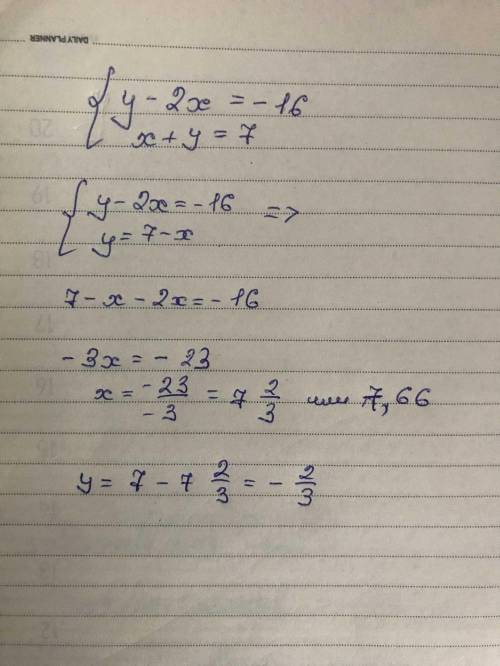 DAILY PLANNER
{ y - 2x = - 16
x + y = 7
{ y - 2x = - 16 =>
y = 7 - x
7 - x - 2x = - 16
- 3x = - 23
x = -23/-3 = 7 2/3 или 7,66
y = 7 - 7 2/3 = - 2/3